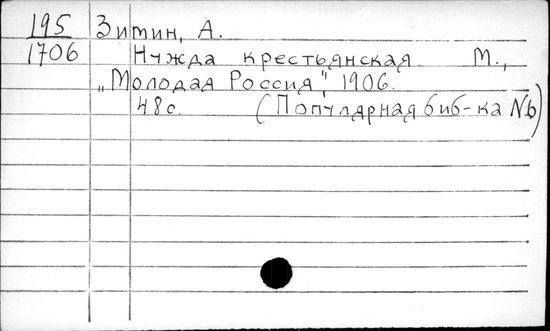 195 Зимин, А.
1706 Нужда крестьянская М.,
„Молодая Россия", 1906.
48 с. (Популярная биб-ка №6)